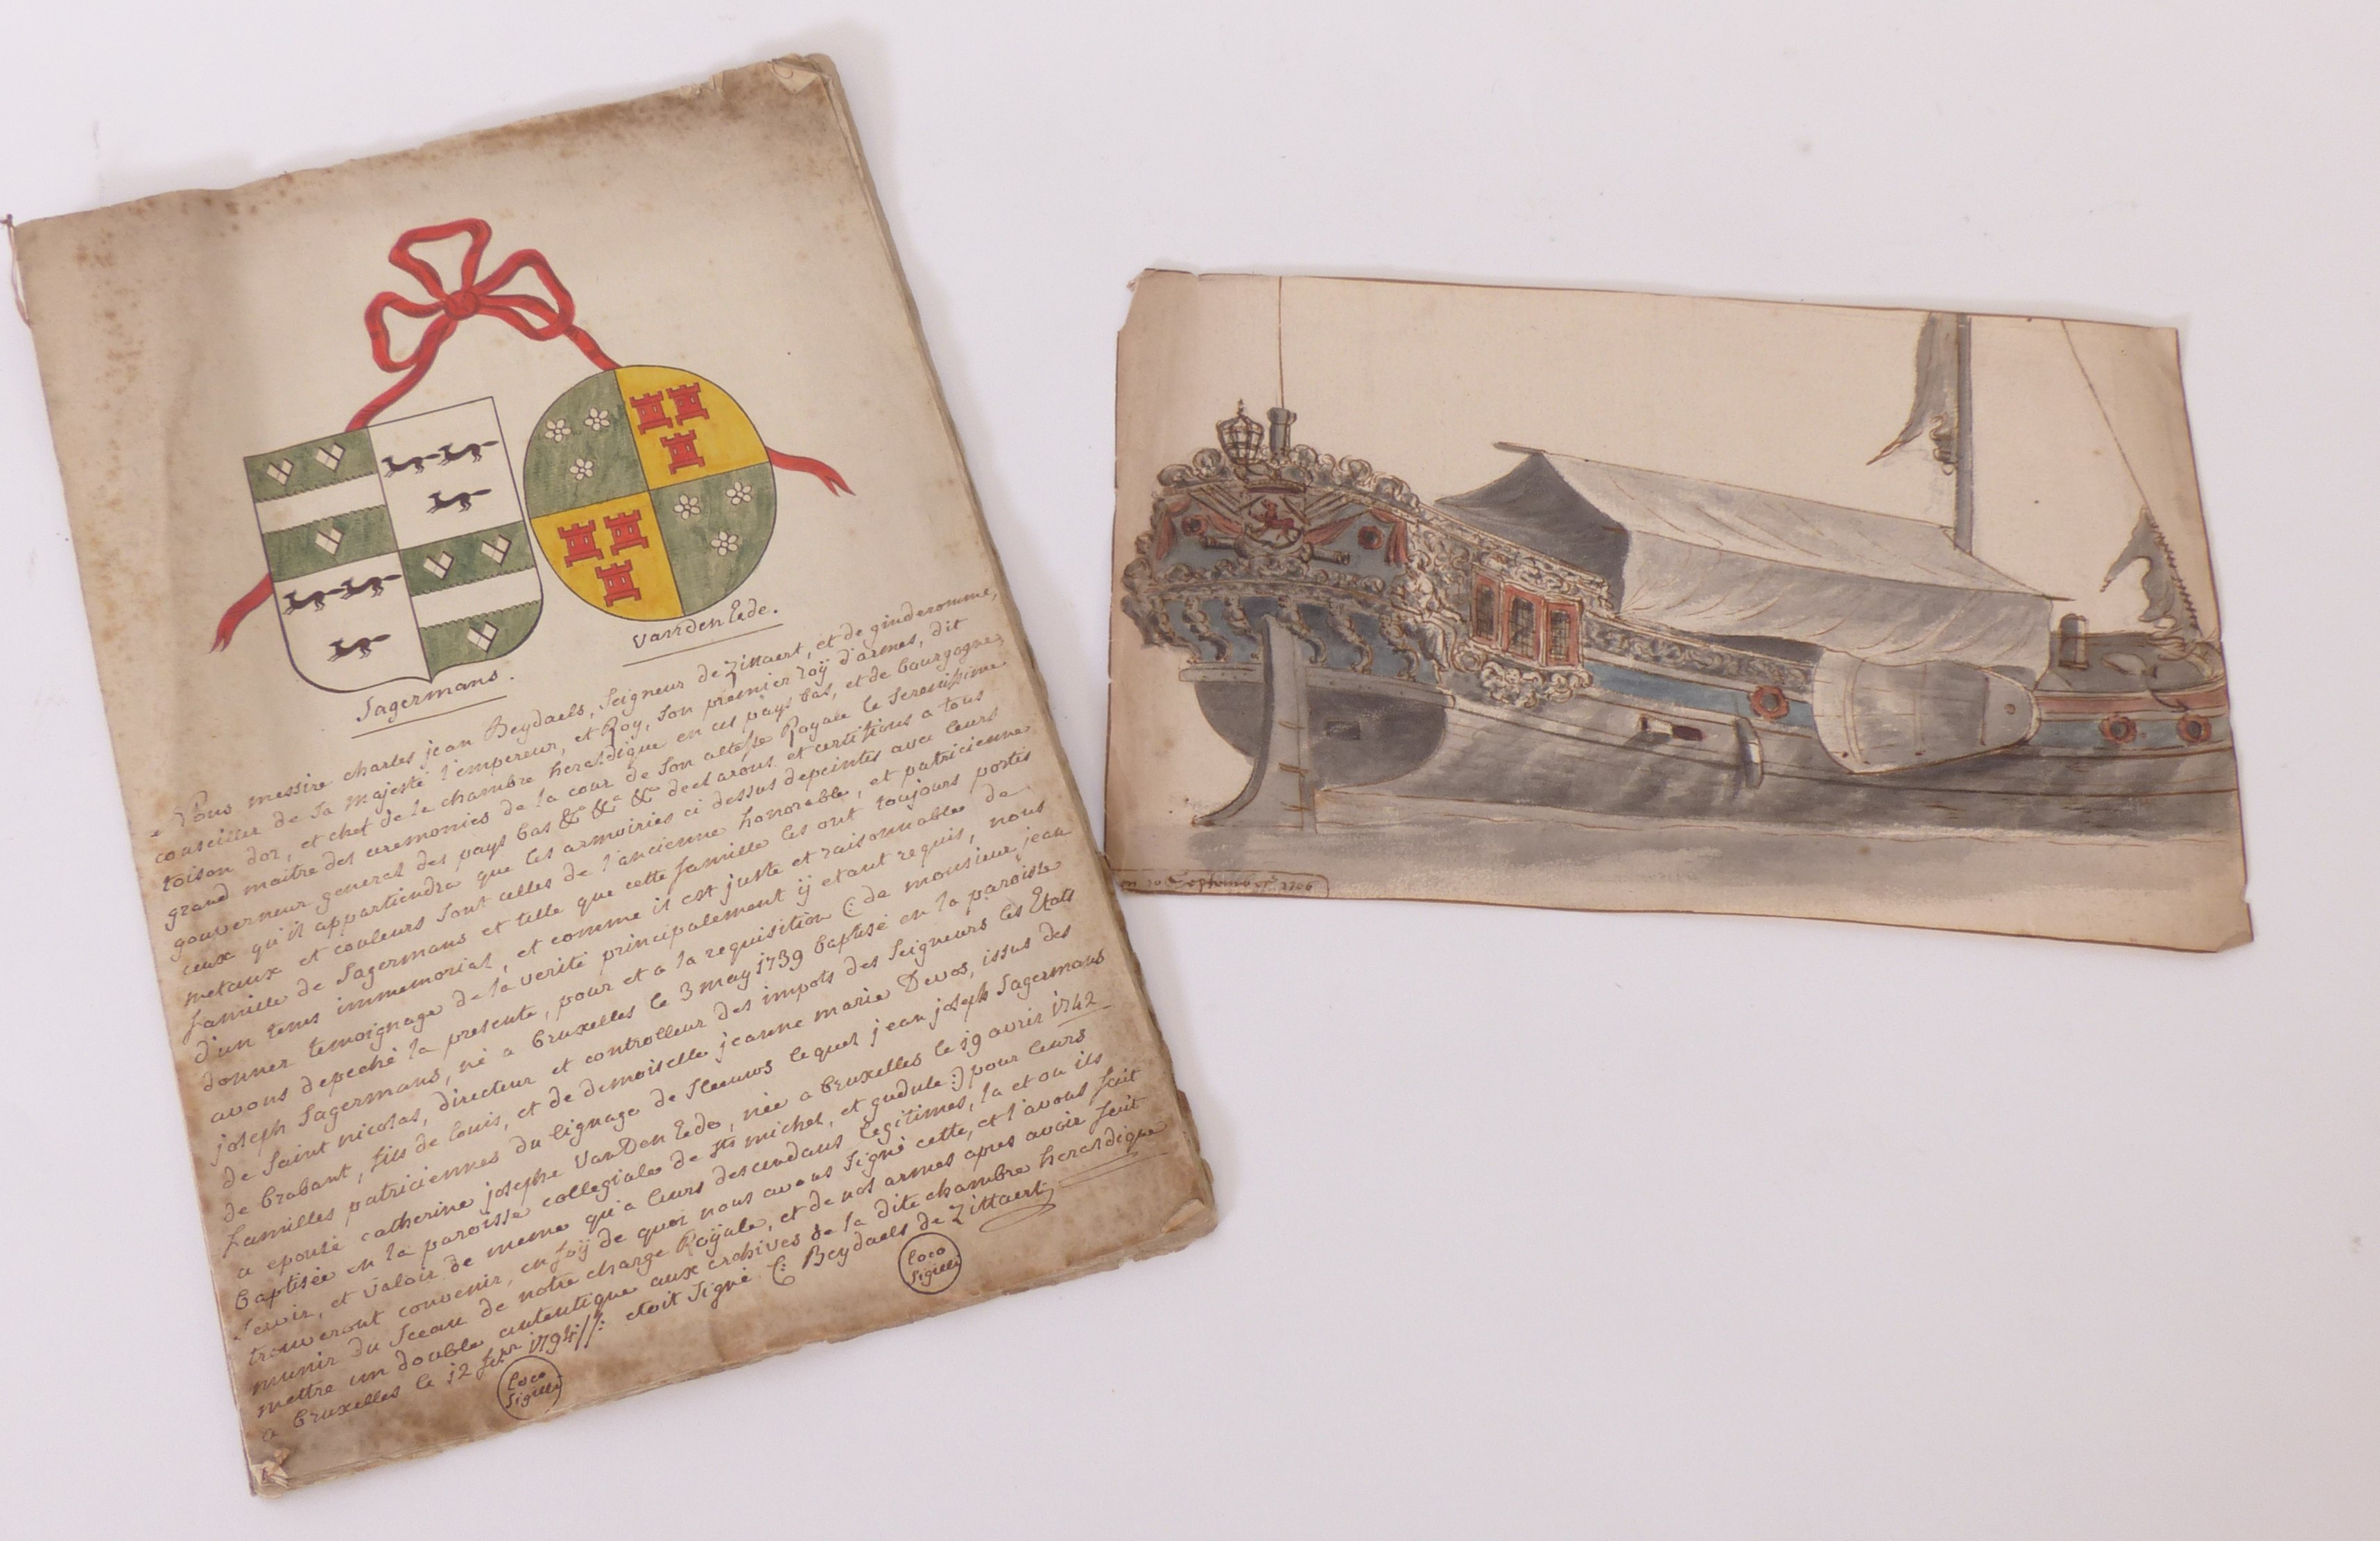 Sagermans.
vandenEede.
Nous messire charles jean Beydaels, seigneur de Zittaert, et de ginderomme,
conseiller de sa majesté l'empereur, et Roy, son premier roÿ d'armes, dit
toison dor, et chef de le chambre heraldique en ces pays bas, et de bourgogne,
grand maitre des ceremonies de la cour de son altesse Royale le serenissime
gouverneur general des pays bas &a &a &a declarons et certifions a tous
ceux qu'il appartiendra que les armoiries ci dessus depeintes avec leurs
metaux et couleurs sont celles de l'ancienne honorable, et patricienne
famille de Sagermans et telle que cette famille les ont toujours portés
d'un tems immemorial, et comme il est juste et raisonnable de
donner temoignage de la verité principalement ÿ etant requis, nous
avons depeché la presente, pour et a la requisition (: de monsieur jean
joseph Sagermans, né a bruxelles le 3 may 1739 baptisé en la paroisse
de saint nicolas, directeur et controlleur des impots des seigneurs les Etats
de brabant, fils de louis, et de demoiselle jeanne marie Devos, issus des
familles patriciennes du lignage de sleeuws lequel jean joseph Sagermans
a epousé catherine josephe VanDenEede, née a bruxelles le 19 avril 1742
baptisée en la paroisse collegiale de sts michel, et gudule :) pour leurs
servir, et valoir de meme qu'a leurs descendans legitimes, la et ou ils
trouveront convenir, en foÿ de quoi nous avons signé cette, et l'avons fait
munir du sceau de notre charge Royale, et de nos armes apres avoir fait
mettre un double autentique aux archives de la dite chambre heraldique
a bruxelles le 12 1794//: etoit signé C: Beydaels de Zittaert
loco
sigilli
loco
sigilli
10 September 1706